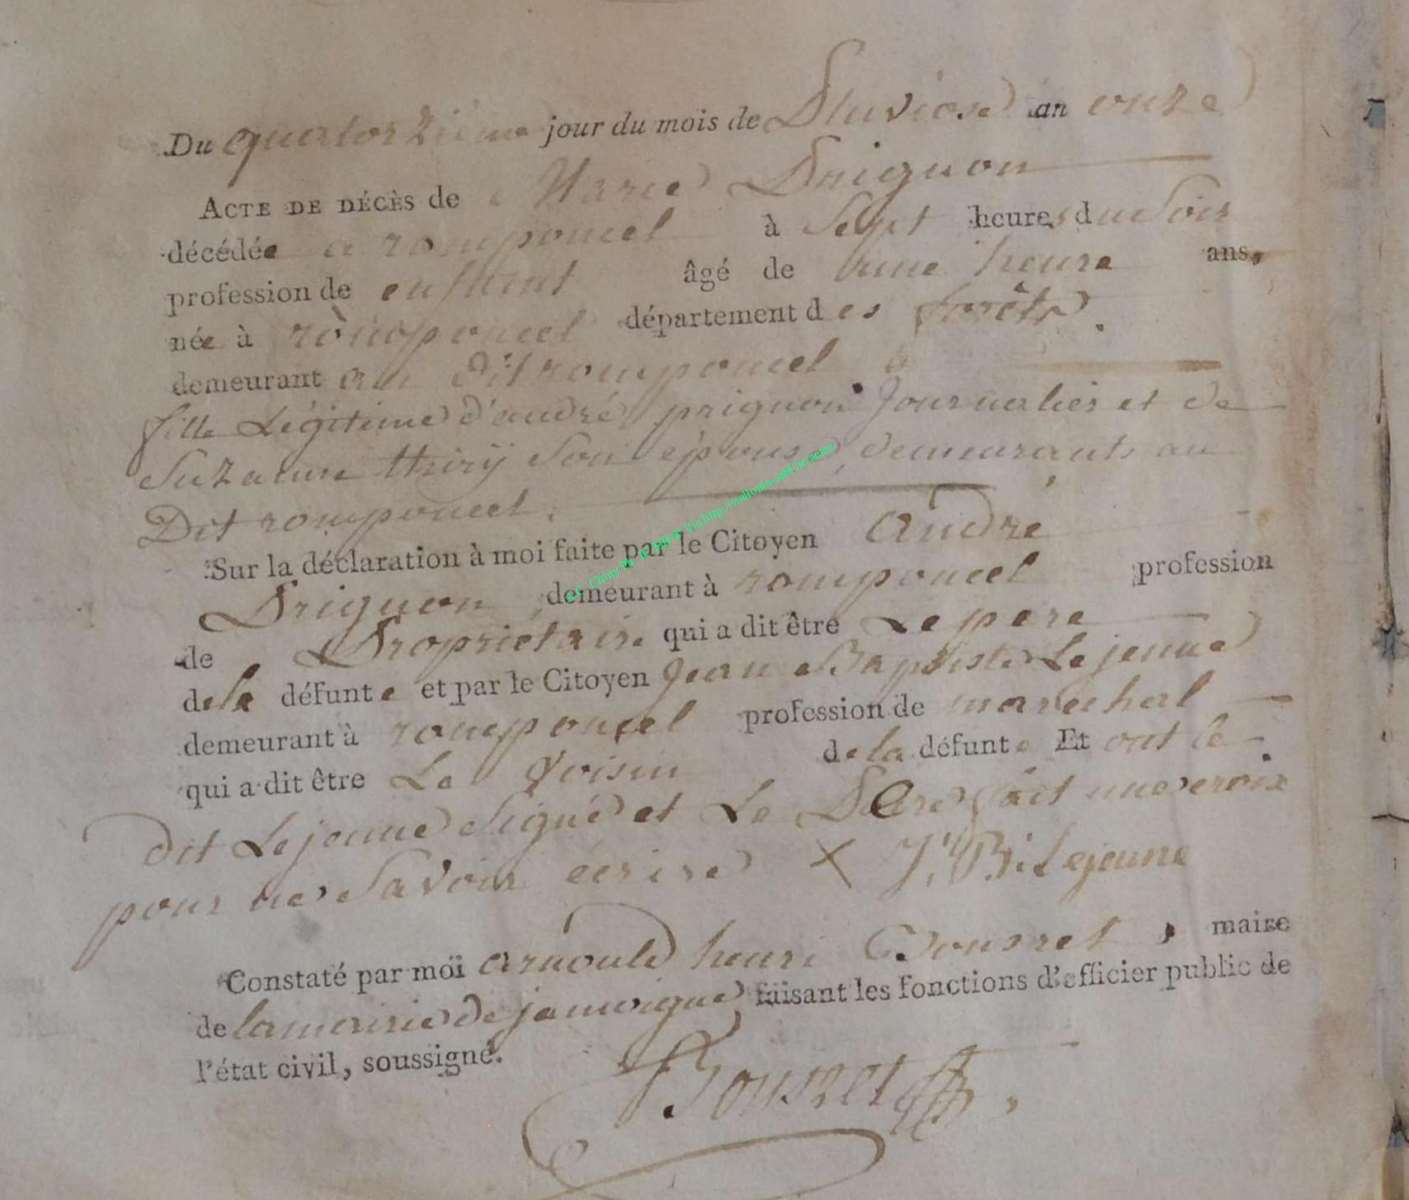 Du quatorzieme jour du mois de Pluviose an onze
ACTE DE DÉCÈS de Marie Prignon
décédée a romponcel à Sept heures du Soir
profession de enfant âgé de une heure ans,
née à romponcel département des forêts.
demeurant au Dit romponcel
fille Légitime d'andré prignon Journalier et de
Suzanne thiry Son épouse, demeurants au
Dit romponcel.
Sur la déclaration à moi faite par le Citoyen André
Prignon demeurant à romponcel profession
de Propriétaire qui a dit être Le pere
de la défunte et par le Citoyen Jean Baptiste Lejeune
demeurant à romponcel profession de marechal
qui a dit être Le Voisin de la défunte Et ont le
Dit Lejeune Signé et Le Pere fait une croix
pour ne Savoir écrire X J. B. Lejeune
Constaté par moi arnould henri Bousret, maire
de la mairie de jamoigne faisant les fonctions d'officier public de
l'état civil, soussigné.
Bousret